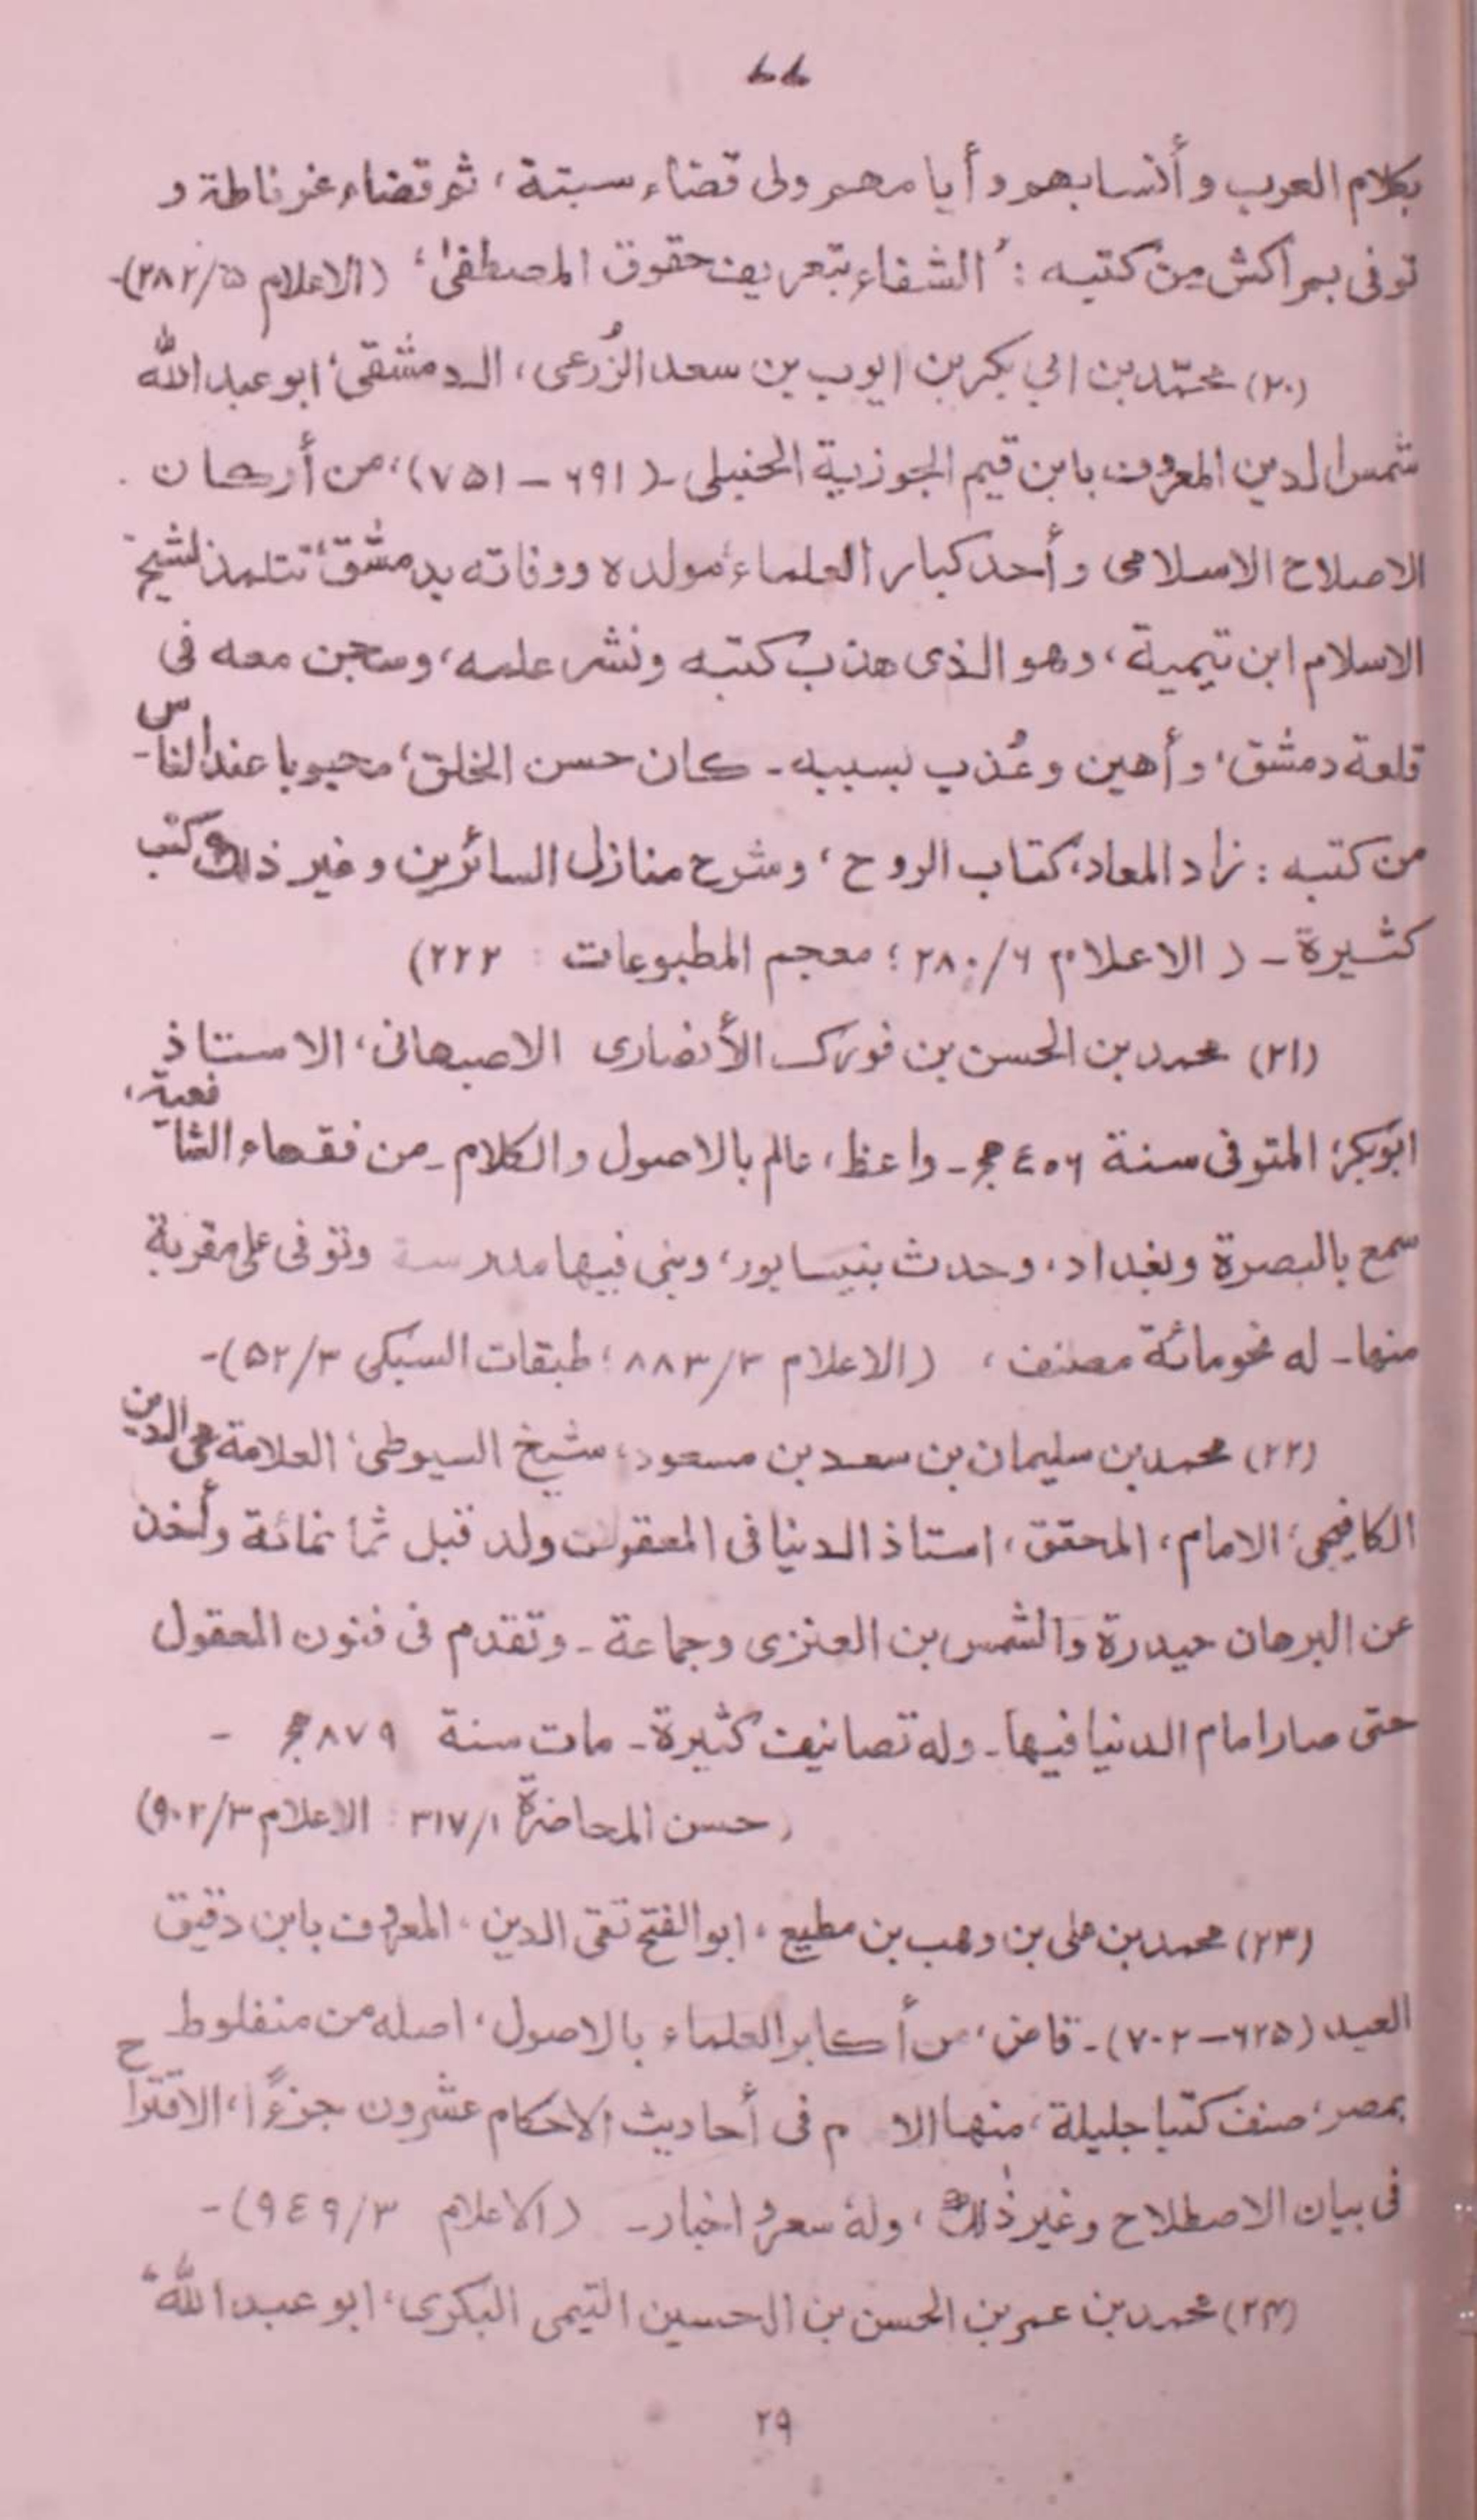 ٤٤
بكلام العرب وأنسابهم وأيامهم ولى قضاء سبتة، ثم قضاء غرناطة و
توفى بمراكش من كتبه: "الشفاء بتعريف حقوق المصطفىٰ" (الاعلام ۲۸۲/۵)-
(۲۰) محمّد بن ابي بكر بن ايوب بن سعد الزُرعى، الدمشقى، ابو عبد الله
شمس الدين المعروف بابن قيم الجوزية الحنبلى - (۶۹۱ - ۷۵۱)، من أركان
الاصلاح الاسلامى وأحد كبار العلماء، مولده ووفاته بدمشق، تتلمذ لشيخ
الاسلام ابن تيمية، وهو الذى هذب كتبه ونشر علمه، وسجن معه فى
قلعة دمشق، وأهين وعُذب بسببه - كان حسن الخلق، محبوبا عند الناس -
من كتبه: زاد المعاد، كتاب الروح، وشرح منازل السائرين وغير ذلك وكتب
كثيرة - (الاعلام ۲۸۰/۶؛ معجم المطبوعات : ۲۲۲)
(۲۱) محمد بن الحسن بن فورك الأنصارى الاصبهانى، الاستاذ
ابوبكر، المتوفى سنة ٤٠٦ھ - واعظ، عالم بالاصول والكلام - من فقهاء الشافعية،
سمع بالبصرة وبغداد، وحدث بنيسابور، وبنى فيها مدرسة وتوفى على مقربة
منها - له نحو مائة مصنف، (الاعلام ۸۸۳/۳؛ طبقات السبكى ۵۲/۳)-
(۲۲) محمد بن سليمان بن سعد بن مسعود، شيخ السيوطى، العلامة محى الدين
الكافيجى، الامام، المحقق، استاذ الدنيا فى المعقولات ولد قبل ثمانمائة وأخذ
عن البرهان حيدرة والشمس بن العنزى وجماعة - وتقدم فى فنون المعقول
حتى صار امام الدنيا فيها - وله تصانيف كثيرة - مات سنة ۸۷۹ھ -
(حسن المحاضرة ۳۱۷/۱ : الاعلام ۹۰۲/۳)
(۲۳) محمد بن على بن وهب بن مطيع، ابو الفتح تقى الدين، المعروف بابن دقيق
العيد (۶۲۵ - ۷۰۲) - قاض، من أكابر العلماء بالاصول، اصله من منفلوط
بمصر، صنف كتبا جليلة، منها الا م فى أحاديث الاحكام عشرون جزءًا، الاقتراح
فى بيان الاصطلاح وغير ذٰلك، وله سعر و اخبار - (الاعلام ۹٤۹/۳)-
(۲۴) محمد بن عمر بن الحسن بن الحسين التيمى البكرى، ابو عبد الله،
۲۹